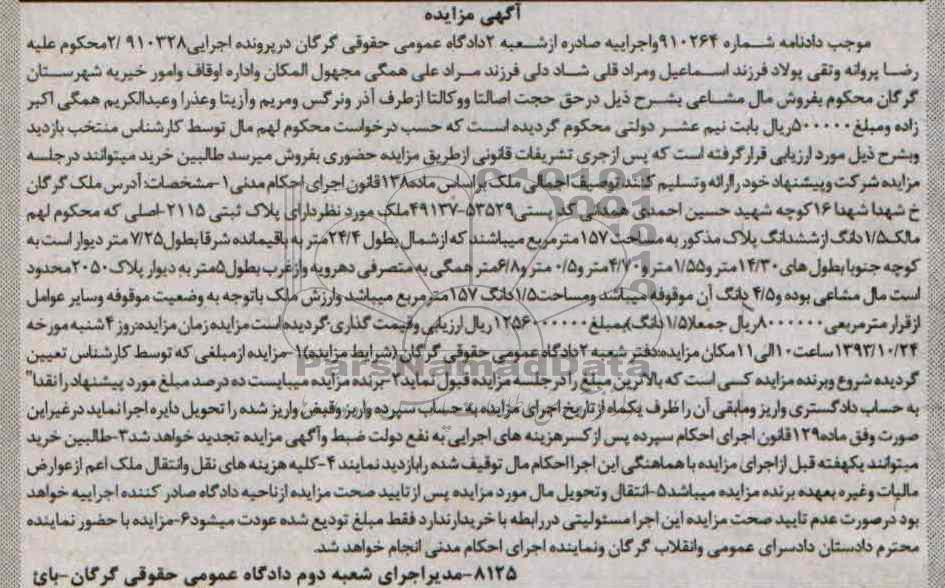 آگهی مزایده
موجب دادنامه شماره ۹۱۰۲۶۴واجراییه صادره ازشعبه ۲دادگاه عمومی حقوقی گرگان درپرونده اجرایی۹۱۰۳۲۸ /۲محکوم علیه
رضا پروانه وتقی پولاد فرزند اسماعیل ومراد قلی شاد دلی فرزند مراد علی همگی مجهول المکان واداره اوقاف وامور خیریه شهرستان
گرگان محکوم بفروش مال مشاعی بشرح ذیل درحق حجت اصالتا ووکالتا ازطرف آذر ونرگس ومریم وآزیتا وعذرا وعبدالکریم همگی اکبر
زاده ومبلغ ۵۰۰۰۰۰ریال بابت نیم عشر دولتی محکوم گردیده است که حسب درخواست محکوم لهم مال توسط کارشناس منتخب بازدید
وبشرح ذیل مورد ارزیابی قرارگرفته است که پس ازجری تشریفات قانونی ازطریق مزایده حضوری بفروش میرسد طالبین خرید میتوانند درجلسه
مزایده شرکت وپیشنهاد خود راارائه وتسلیم کنند.توصیف اجمالی ملک براساس ماده۱۳۸قانون اجرای احکام مدنی۱-مشخصات: آدرس ملک گرگان
خ شهدا شهدا ۱۶کوچه شهید حسین احمدی همدانی کد پستی۵۳۵۲۹-۴۹۱۳۷ملک مورد نظردارای پلاک ثبتی ۲۱۱۵-اصلی که محکوم لهم
مالک۱/۵دانگ ازششدانگ پلاک مذکور به مساحت ۱۵۷ مترمربع میباشند که ازشمال بطول ۲۴/۴متر به باقیمانده شرقا بطول۷/۲۵ متر دیوار است به
کوچه جنوبا بطول های۱۴/۳۰متر و۱/۵۵متر و۴/۷۰متر و۰/۵ متر و۶/۸متر همگی به متصرفی دهرویه وازغرب بطول۵متر به دیوار پلاک۲۰۵۰محدود
است مال مشاعی بوده و۴/۵ دانگ آن موقوفه میباشد ومساحت۱/۵دانگ ۱۵۷ مترمربع میباشد وارزش ملک باتوجه به وضعیت موقوفه وسایر عوامل
ازقرار مترمربعی ۸۰۰۰۰۰۰ریال جمعا(۱/۵دانگ)بمبلغ ۱۲۵۶۰۰۰۰۰۰ ریال ارزیابی وقیمت گذاری گردیده است مزایده زمان مزایده:روز ۴شنبه مورخه
۱۳۹۳/۱۰/۲۴ ساعت۱۰الی۱۱ مکان مزایده:دفتر شعبه ۲دادگاه عمومی حقوقی گرگان (شرایط مزایده)۱-مزایده ازمبلغی که توسط کارشناس تعیین
گردیده شروع وبرنده مزایده کسی است که بالاترین مبلغ را درجلسه مزایده قبول نماید۲-برنده مزایده میبایست ده درصد مبلغ مورد پیشنهاد را نقدا"
به حساب دادگستری واریز ومابقی آن را ظرف یکماه ازتاریخ اجرای مزایده به حساب سپرده واریز وقبض واریز شده را تحویل دایره اجرا نماید درغیراین
صورت وفق ماده۱۲۹قانون اجرای احکام سپرده پس ازکسرهزینه های اجرایی به نفع دولت ضبط وآگهی مزایده تجدید خواهد شد۳-طالبین خرید
میتوانند یکهفته قبل ازاجرای مزایده با هماهنگی این اجرا احکام مال توقیف شده رابازدید نمایند ۴-کلیه هزینه های نقل وانتقال ملک اعم ازعوارض
مالیات وغیره بعهده برنده مزایده میباشد۵-انتقال وتحویل مال مورد مزایده پس ازتایید صحت مزایده ازناحیه دادگاه صادر کننده اجراییه خواهد
بود درصورت عدم تایید صحت مزایده این اجرا مسئولیتی دررابطه با خریدارندارد فقط مبلغ تودیع شده عودت میشود۶-مزایده با حضور نماینده
محترم دادستان دادسرای عمومی وانقلاب گرگان ونماینده اجرای احکام مدنی انجام خواهد شد.
۸۱۲۵-مدیراجرای شعبه دوم دادگاه عمومی حقوقی گرگان-بائ
ParsNamadData